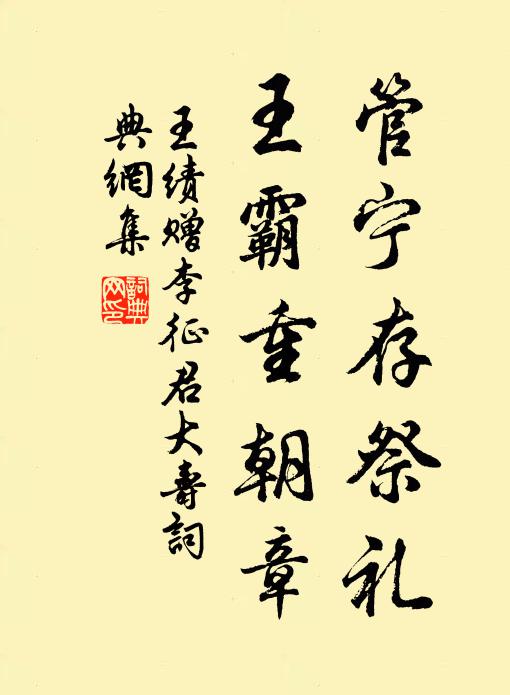 管宁存祭礼
王霸重朝章
王绩赠李征君大寿詞
典網集
詞典网印